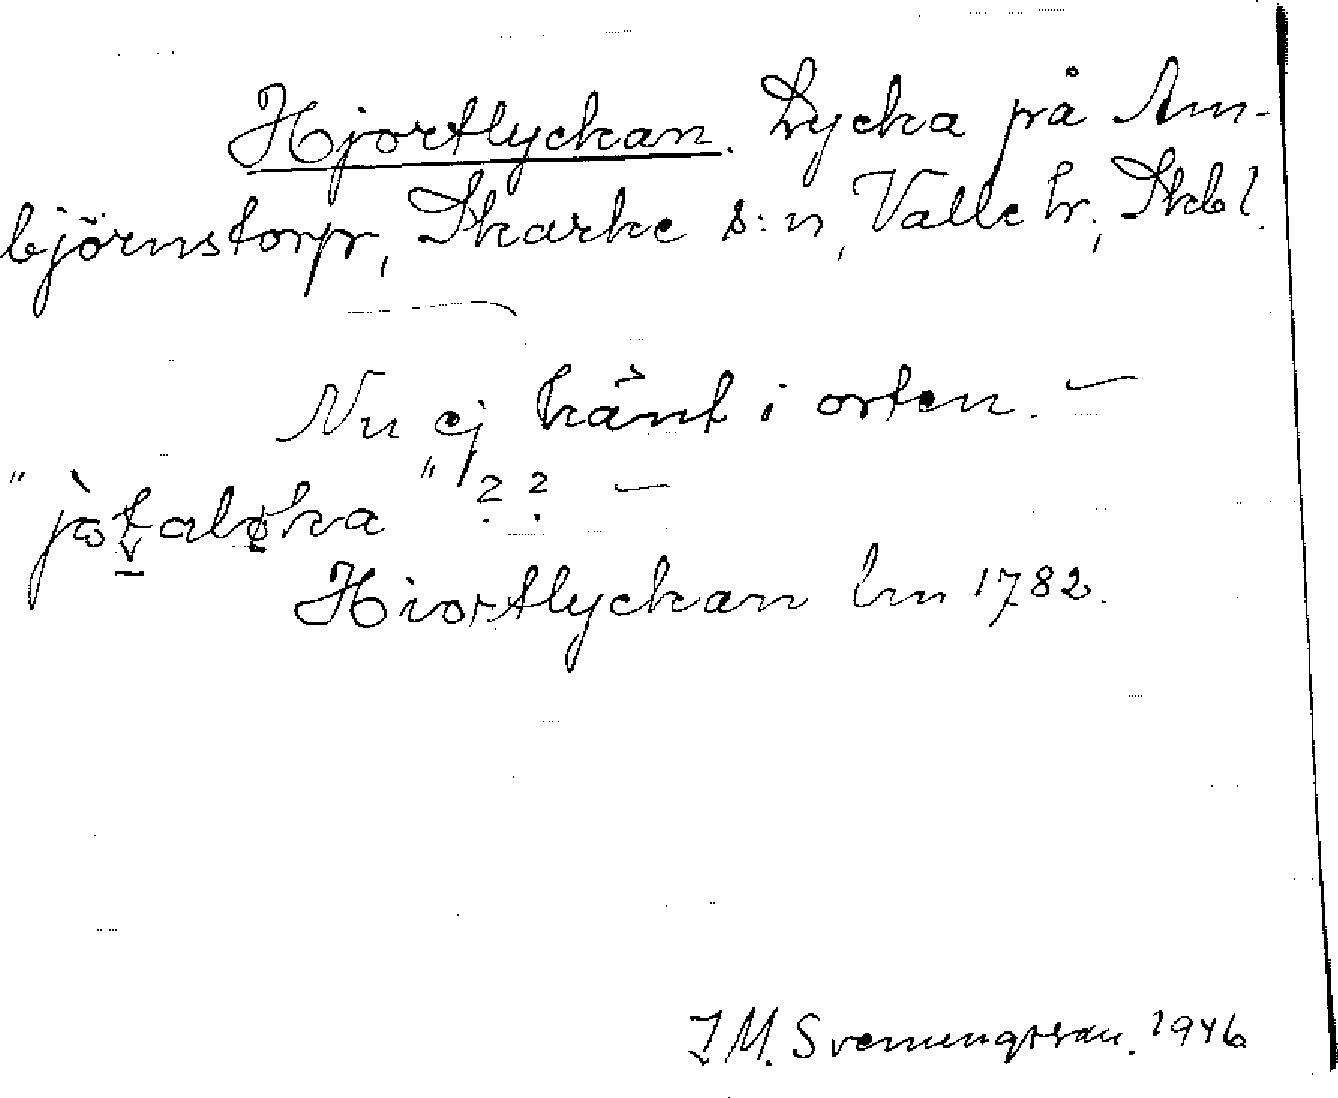 Hjortlyckan. Lycka på Am-
björnstorp, Skarke s:n, Valle hr, Skbl.
Nu ej känt i orten. —
" " ? ? —
Hiortlyckan lm 1782.
J M. Svenungsson. 1946